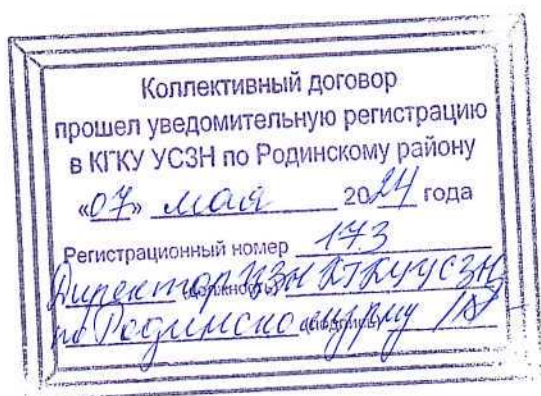 Коллективный договор
прошел уведомительную регистрацию
в КГКУ УСЗН по Родинскому району
«07» мая 2024 года
Регистрационный номер 173
Директор ЦЗН КГКУ УСЗН
(должность)
по Родинскому
(подпись)